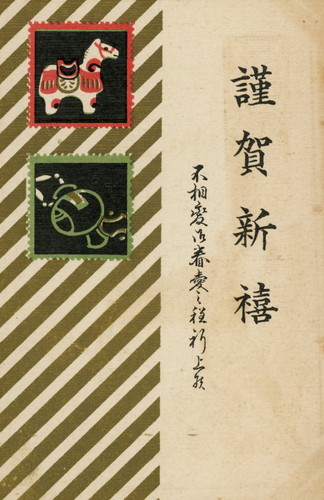 謹賀新禧
不相變御眷愛之程祈上候